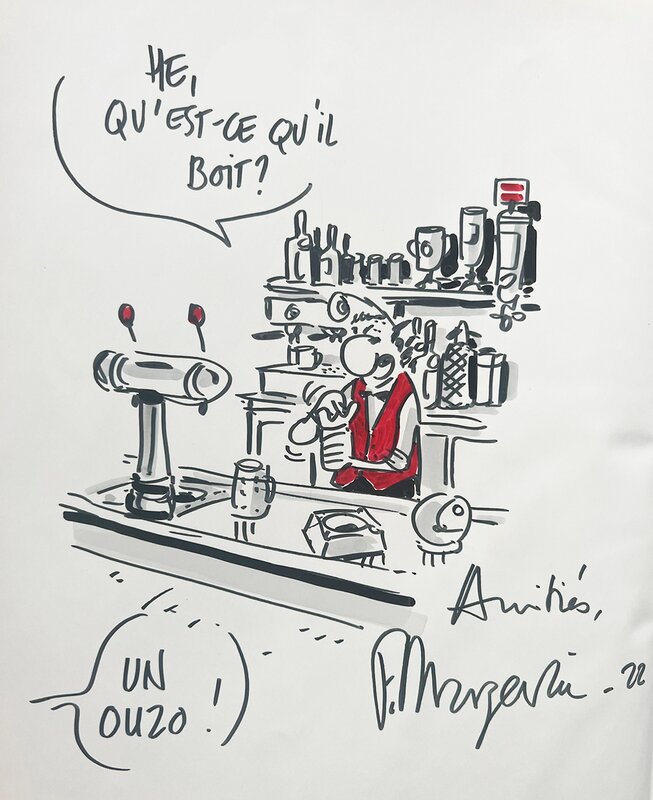 HE,
QU'EST-CE QU'IL
BOIT?
Amitiés,
F. Margerin - 22
UN
OUZO !